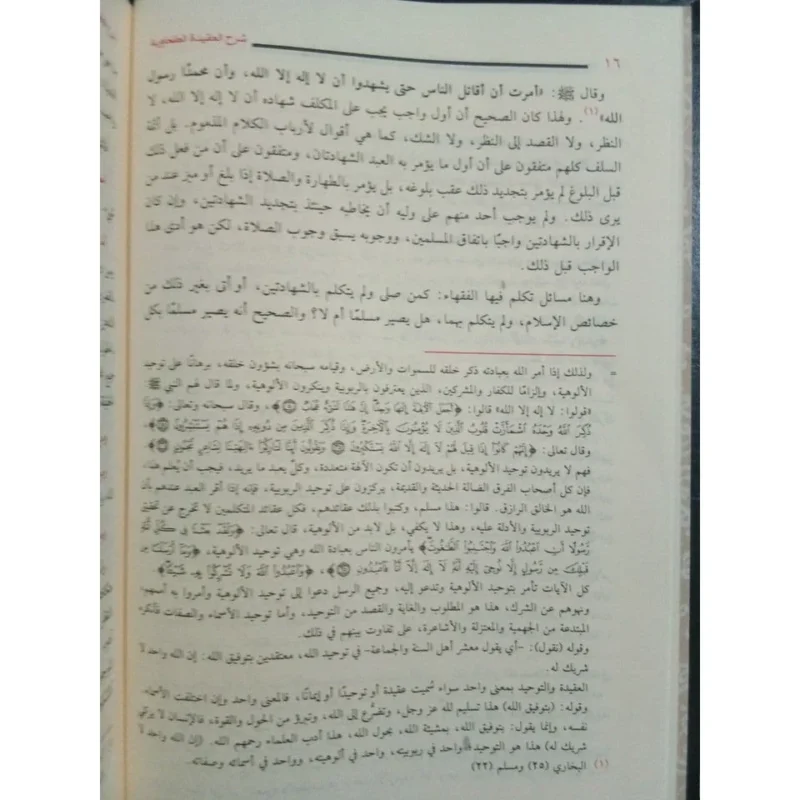 ١٦
شرح العقيدة الطحاوية
وقال ﷺ: «أمرت أن أقاتل الناس حتى يشهدوا أن لا إله إلا الله، وأن محمدًا رسول
الله»(١). ولهذا كان الصحيح أن أول واجب يجب على المكلف شهاده أن لا إله إلا الله، لا
النظر، ولا القصد إلى النظر، ولا الشك، كما هي أقوال لأرباب الكلام المذموم. بل أئمة
السلف كلهم متفقون على أن أول ما يؤمر به العبد الشهادتان، ومتفقون على أن من فعل ذلك
قبل البلوغ لم يؤمر بتجديد ذلك عقب بلوغه، بل يؤمر بالطهارة والصلاة إذا بلغ أو ميز عند من
يرى ذلك. ولم يوجب أحد منهم على وليه أن يخاطبه حينئذ بتجديد الشهادتين، وإن كان
الإقرار بالشهادتين واجبًا باتفاق المسلمين، ووجوبه يسبق وجوب الصلاة، لكن هو أدى هذا
الواجب قبل ذلك.
وهنا مسائل تكلم فيها الفقهاء: كمن صلى ولم يتكلم بالشهادتين، أو أتى بغير ذلك من
خصائص الإسلام، ولم يتكلم بهما، هل يصير مسلمًا أم لا؟ والصحيح أنه يصير مسلمًا بكل
= ولذلك إذا أمر الله بعبادته ذكر خلقه للسموات والأرض، وقيامه سبحانه بشؤون خلقه، برهانًا على توحيد
الألوهية، وإلزامًا للكفار والمشركين، الذين يعترفون بالربوبية وينكرون الألوهية، ولما قال لهم النبي ﷺ
«قولوا: لا إله إلا الله» قالوا: ﴿أَجَعَلَ الْآلِهَةَ إِلَهًا وَاحِدًا إِنَّ هَذَا لَشَيْءٌ عُجَابٌ﴾، وقال سبحانه وتعالى: ﴿وَإِذَا
ذُكِرَ اللَّهُ وَحْدَهُ اشْمَأَزَّتْ قُلُوبُ الَّذِينَ لَا يُؤْمِنُونَ بِالْآخِرَةِ وَإِذَا ذُكِرَ الَّذِينَ مِن دُونِهِ إِذَا هُمْ يَسْتَبْشِرُونَ﴾،
وقال تعالى: ﴿إِنَّهُمْ كَانُوا إِذَا قِيلَ لَهُمْ لَا إِلَهَ إِلَّا اللَّهُ يَسْتَكْبِرُونَ وَيَقُولُونَ أَئِنَّا لَتَارِكُوا آلِهَتِنَا لِشَاعِرٍ مَّجْنُونٍ﴾
فهم لا يريدون توحيد الألوهية، بل يريدون أن تكون الآلهة متعددة، وكلّ يعبد ما يريد، فيجب أن يُعلم هذا،
فإن كل أصحاب الفرق الضالة الحديثة والقديمة، يركزون على توحيد الربوبية، فإنه إذا أقر العبد عندهم بأن
الله هو الخالق الرازق. قالوا: هذا مسلم، وكتبوا بذلك عقائدهم، فكل عقائد المتكلمين لا تخرج عن تحقيق
توحيد الربوبية والأدلة عليه، وهذا لا يكفي، بل لابد من الألوهية، قال تعالى: ﴿وَلَقَدْ بَعَثْنَا فِي كُلِّ أُمَّةٍ
رَّسُولًا أَنِ اعْبُدُوا اللَّهَ وَاجْتَنِبُوا الطَّاغُوتَ﴾ يأمرون الناس بعبادة الله وهي توحيد الألوهية، ﴿وَمَا أَرْسَلْنَا مِن
قَبْلِكَ مِن رَّسُولٍ إِلَّا نُوحِي إِلَيْهِ أَنَّهُ لَا إِلَهَ إِلَّا أَنَا فَاعْبُدُونِ﴾، ﴿وَاعْبُدُوا اللَّهَ وَلَا تُشْرِكُوا بِهِ شَيْئًا﴾
كل الآيات تأمر بتوحيد الألوهية وتدعو إليه، وجميع الرسل دعوا إلى توحيد الألوهية وأمروا به أممهم،
ونهوهم عن الشرك، هذا هو المطلوب والغاية والقصد من التوحيد، وأما توحيد الأسماء والصفات فأنكره
المبتدعة من الجهمية والمعتزلة والأشاعرة، على تفاوت بينهم في ذلك.
وقوله (نقول): -أي يقول معشر أهل السنة والجماعة- في توحيد الله، معتقدين بتوفيق الله: إن الله واحد لا
شريك له.
العقيدة والتوحيد بمعنى واحد سواء سُميت عقيدة أو توحيدًا أو إيمانًا، فالمعنى واحد وإن اختلفت الأسماء.
وقوله: (بتوفيق الله) هذا تسليم لله عز وجل، وتضرُّع إلى الله، وتبرؤ من الحول والقوة، فالإنسان لا يزكي
نفسه، وإنما يقول: بتوفيق الله، بمشيئة الله، بحول الله، هذا أدب العلماء رحمهم الله. (إن الله واحد لا
شريك له) هذا هو التوحيد واحد في ربوبيته، واحد في ألوهيته، وواحد في أسمائه وصفاته.
(١) البخاري (٢٥) ومسلم (٢٢)